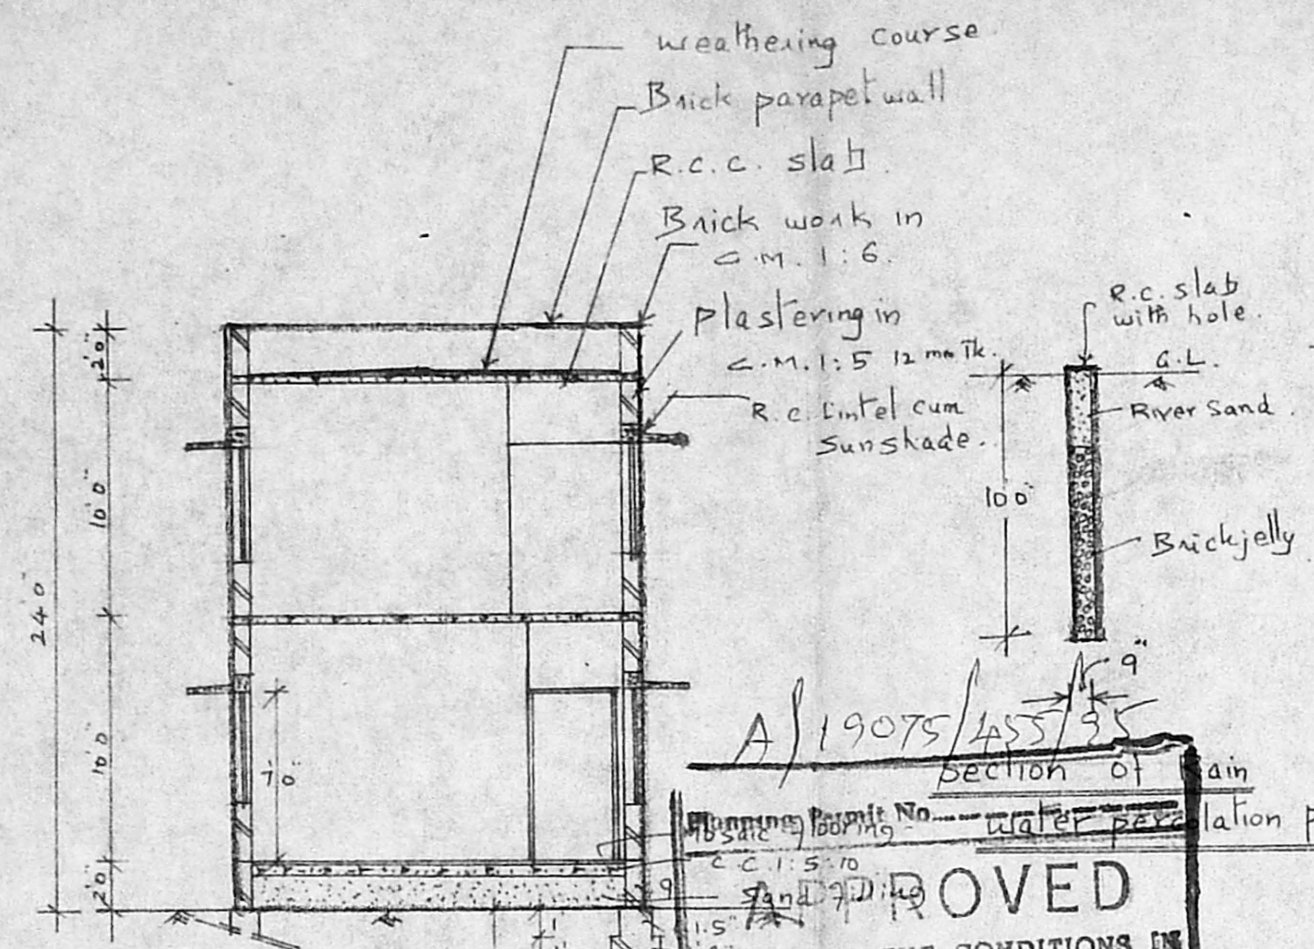 weathering course
Brick parapet wall
R.C.C. slab
Brick work in
C.M. 1:6.
plastering in
C.M. 1:5 12 mm Tk.
R.C. Lintel cum
Sunshade.
R.C. slab
with hole.
G.L.
River Sand.
Brick jelly
10'0"
9"
2'0"
10'0"
24'0"
10'0"
7'0"
2'0"
A/19075/455/95
Section of Rain
water percolation
Planning Permit No.
Mosaic flooring
C.C. 1:5:10
Sand filling
APPROVED
9
1.5"
CONDITIONS IN